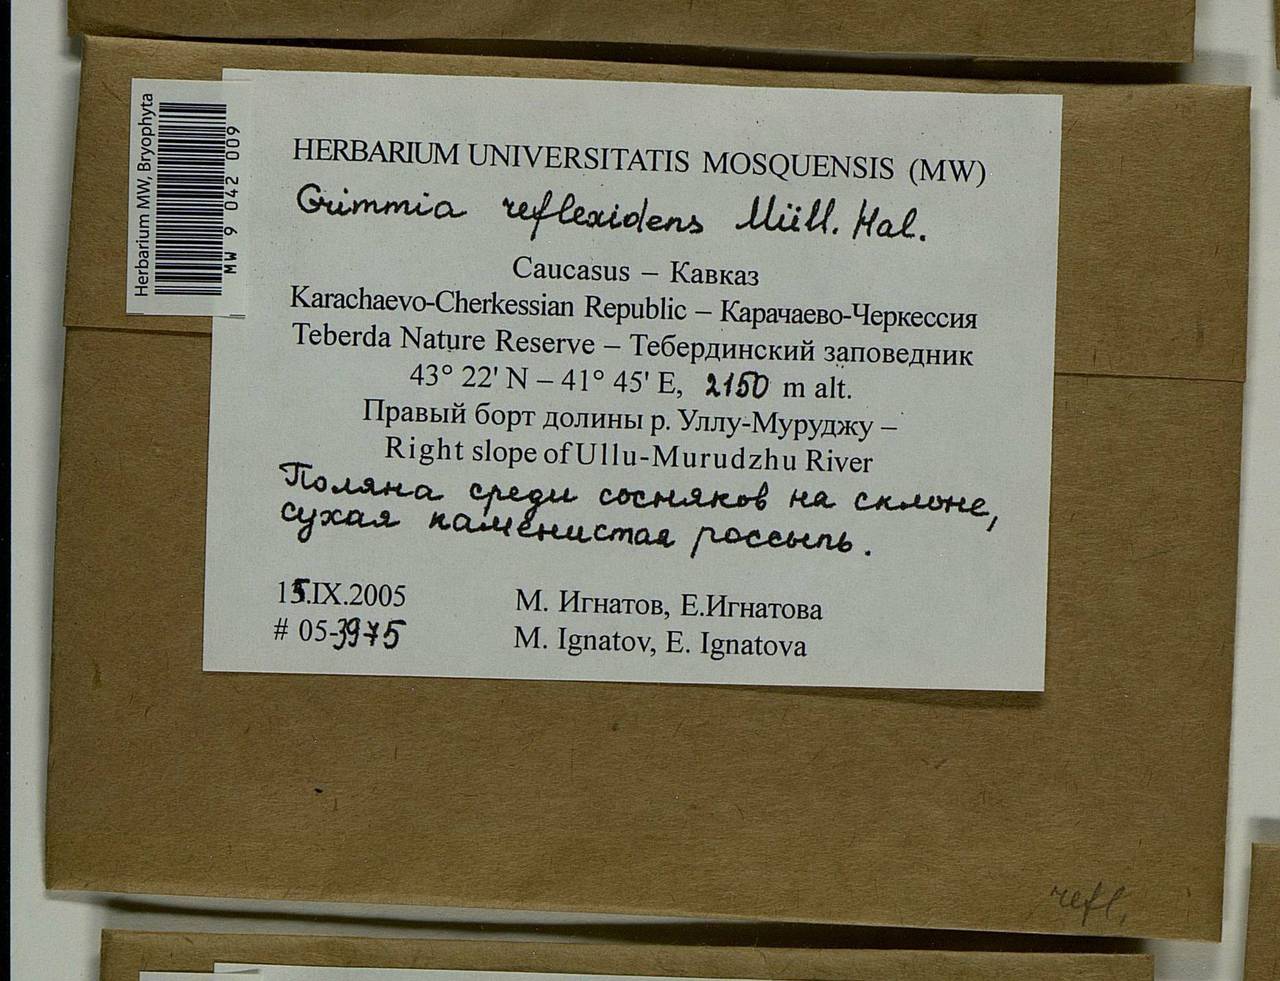 Herbarium MW, Bryophyta
MW 9 042 009
HERBARIUM UNIVERSITATIS MOSQUENSIS (MW)
Grimmia reflexidens Müll. Hal.
Caucasus – Кавказ
Karachaevo-Cherkessian Republic – Карачаево-Черкессия
Teberda Nature Reserve – Тебердинский заповедник
43° 22' N – 41° 45' E, 2150 m alt.
Правый борт долины р. Уллу-Муруджу –
Right slope of Ullu-Murudzhu River
Поляна среди сосняков на склоне,
сухая каменистая россыпь.
15.IX.2005
М. Игнатов, Е.Игнатова
# 05-3975
M. Ignatov, E. Ignatova
refl.